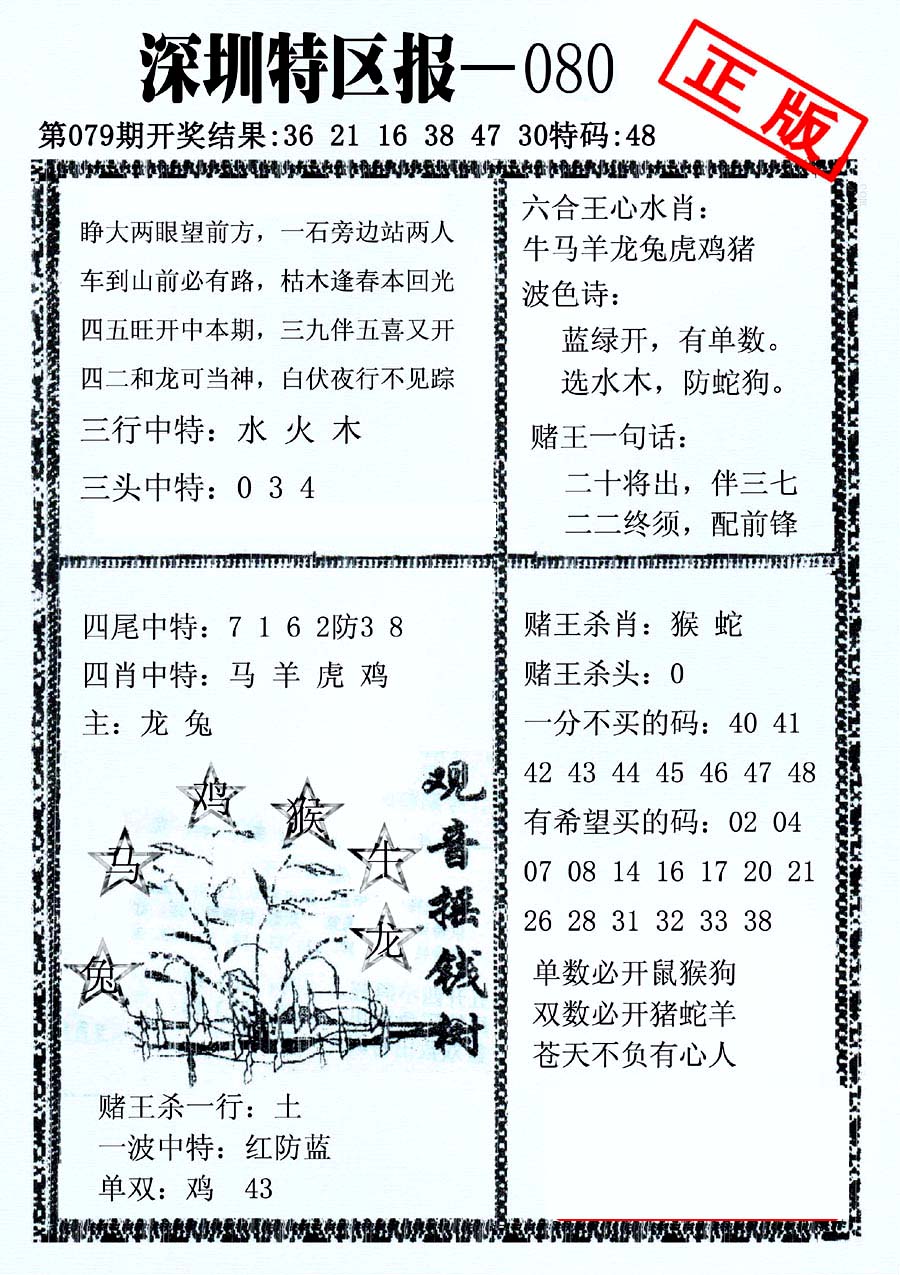 深圳特区报—080
正版
第079期开奖结果:36 21 16 38 47 30特码:48
睁大两眼望前方，一石旁边站两人
车到山前必有路，枯木逢春本回光
四五旺开中本期，三九伴五喜又开
四二和龙可当神，白伏夜行不见踪
三行中特：水 火 木
三头中特：0 3 4
六合王心水肖：
牛马羊龙兔虎鸡猪
波色诗：
蓝绿开，有单数。
选水木，防蛇狗。
赌王一句话：
二十将出，伴三七
二二终须，配前锋
四尾中特：7 1 6 2防3 8
四肖中特：马 羊 虎 鸡
主：龙 兔
鸡
猴
马
牛
龙
兔
观音摇钱树
赌王杀一行：土
一波中特：红防蓝
单双：鸡 43
赌王杀肖：猴 蛇
赌王杀头：0
一分不买的码：40 41
42 43 44 45 46 47 48
有希望买的码：02 04
07 08 14 16 17 20 21
26 28 31 32 33 38
单数必开鼠猴狗
双数必开猪蛇羊
苍天不负有心人